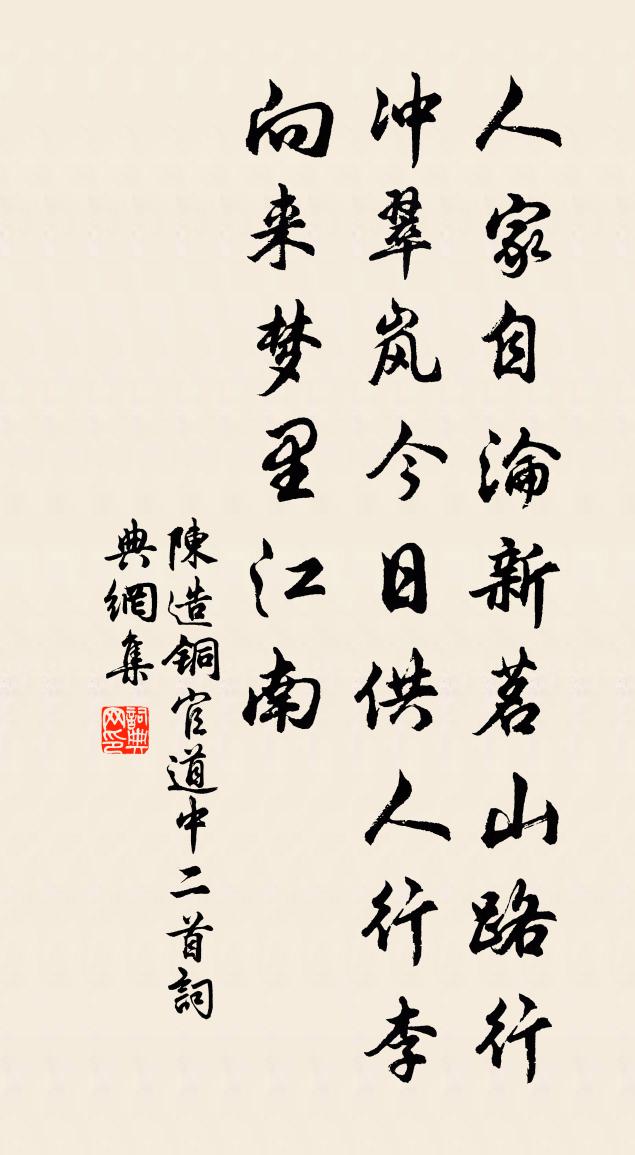 人家自瀹新茗山路行
冲翠岚今日供人行李
向来梦里江南
陳造铜官道中二首詞
典網集
詞典网印